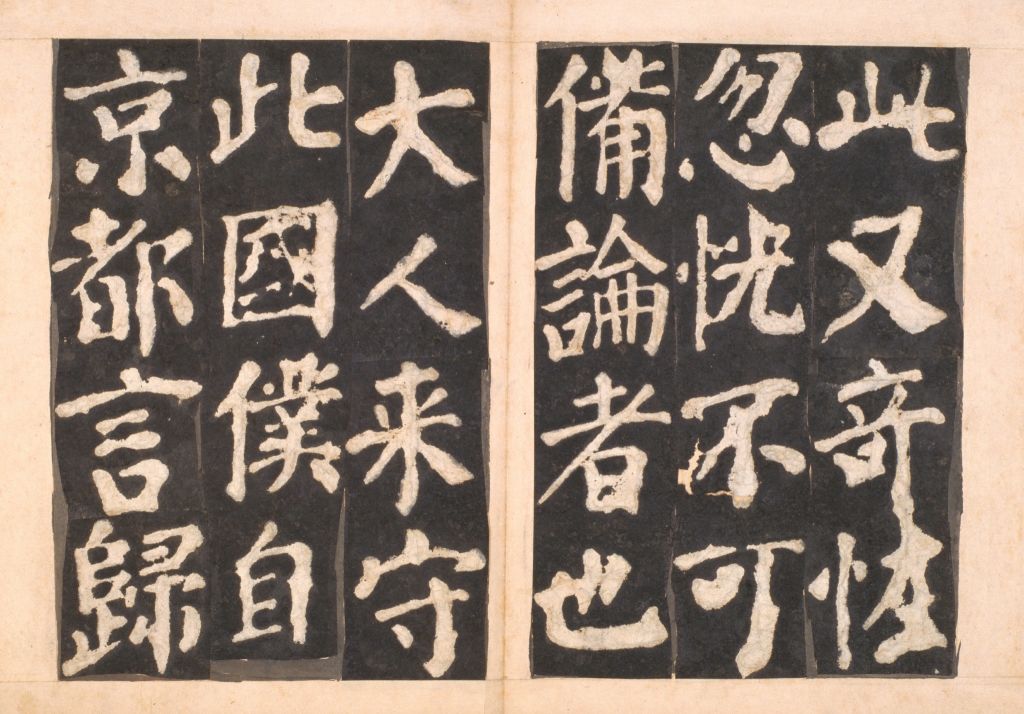 此又竒恠
忽恍不可
備論者也
大人来守
此國僕自
京都言歸